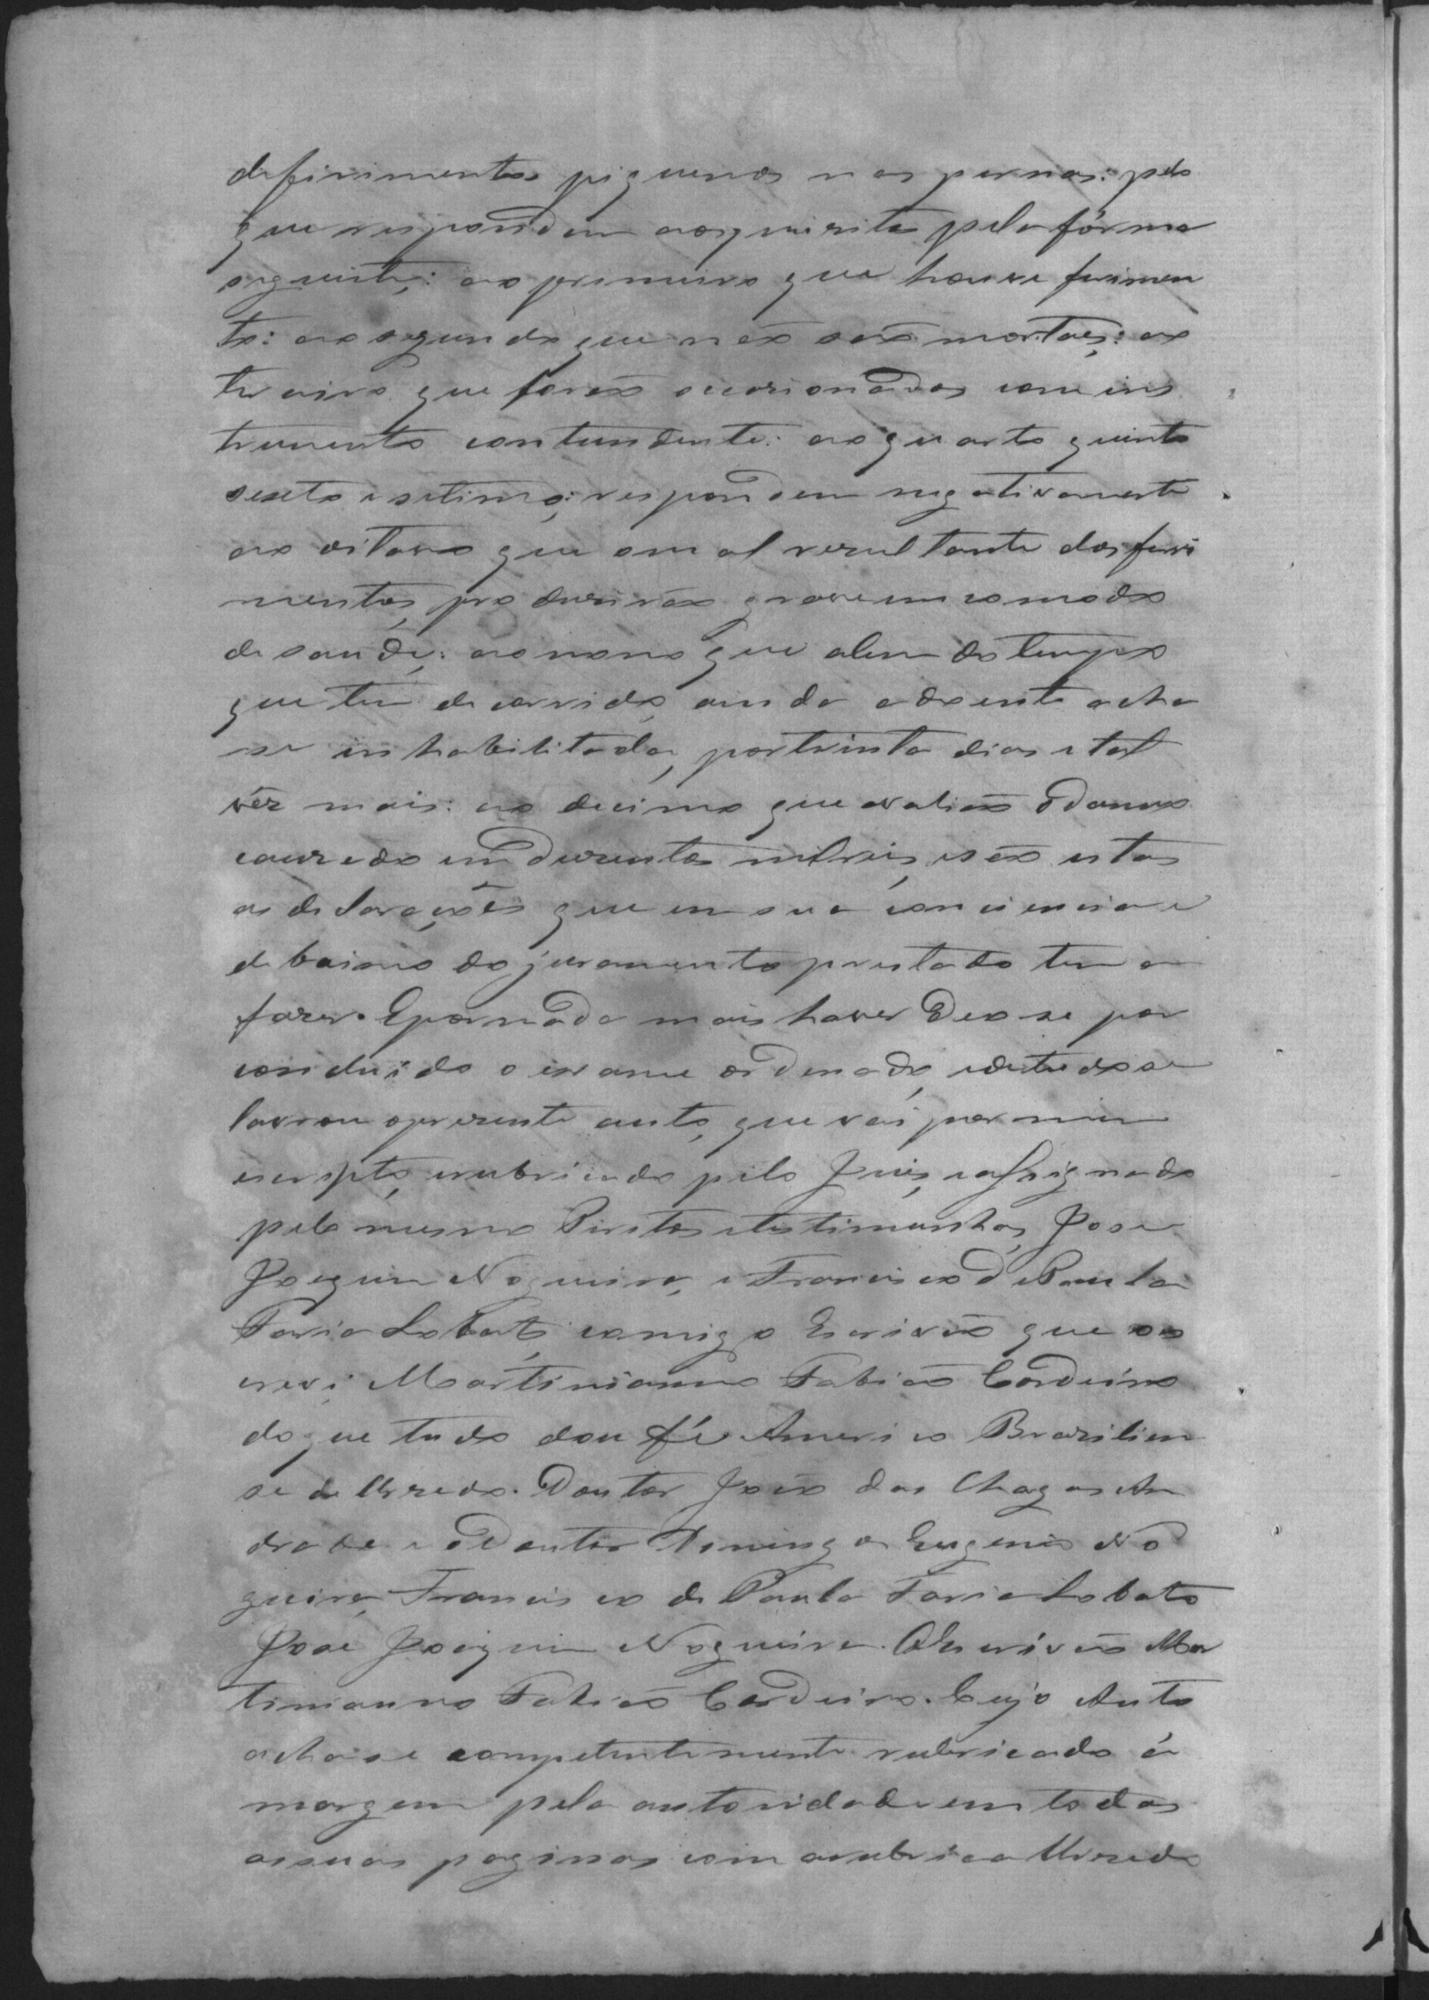 deferimentos piquenos nas pernas: pelo
que respondem aos quesitos pela fórma
seguinte; ao primeiro que houve ferimen
to: ao segundo que não são mortaes; ao
terceiro que forão occasionados com ins
trumento contundente: ao quarto quinto
sexto e setimo; respondem negativamente
ao oitavo que o mal rezultante dos feri
mentos, produzirão grave incomodo
de saude; ao nono que alem do tempo
que tem decorrido, ainda a doente acha
se inhabilitada, por trinta dias e tal
vêz mais: ao decimo que avalião o damno
cauzado em duzentos milreis, e são estas
as declarações que em sua conciencia e
debaixo do juramento prestado tem a
fazer. E por nada mais haver deo se por
concluido o exame ordenado, e de tudo se
lavrou o prezente auto, que vai por mim
escripto, e rubricado pelo Juiz, e assignado
pelo mesmo Peritos e testimunhas, Jose
Joaquim Nogueira, e Francisco de Paula
Faria Lobato, comigo Escrivão que o es
crevi Martinianno Fabião Cordeiro
do que tudo dou fé Americo Brazilien
se de Urzedo. Doutor João das Chagas An
drade e o Doutor Domingos Eugenio No
gueira, Francisco de Paula Faria Lobato
Jose Joaquim Nogueira. O Escrivão Mar
tinianno Fabião Cordeiro. Cujo Auto
acha se competentemente rubricado á
margem pela autoridade em todas
as suas paginas com a rubrica Urzedo